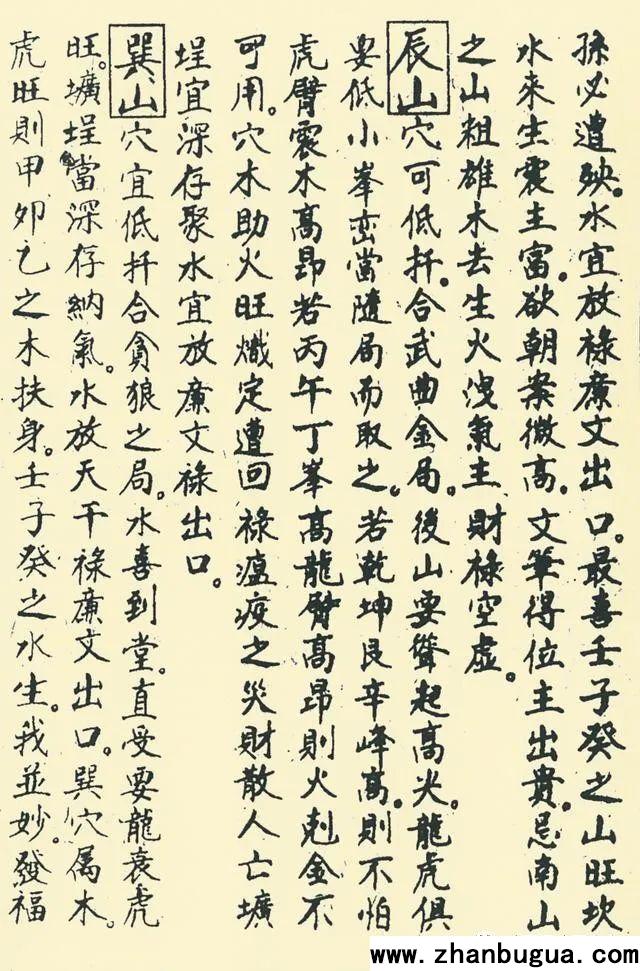 孫必遭殃。水宜放祿廉文出口。最喜壬子癸之山旺坎
水來生震主富。欲朝案微高。文筆得位主出貴。忌南山
之山粗雄木去生火洩氣主財祿空虛。
辰山穴可低扦。合武曲金局。後山要聳起高尖。龍虎俱
要低小峯巒當隨局而取之。若乾坤艮辛峰高。則不怕
虎臂震木高昂若丙午丁峯高龍臂高昂則火剋金不
可用。穴木助火旺熾定遭回祿瘟疫之災財散人亡壙
埕宜深存聚水宜放廉文祿出口。
巽山穴宜低扦合貪狼之局。水喜到堂。直受要龍衰虎
旺。壙埕當深存納氣。水放天干祿廉文出口。巽穴属木。
虎旺則甲卯乙之木扶身。壬子癸之水生。我並妙。發福
www.zhanbugua.com